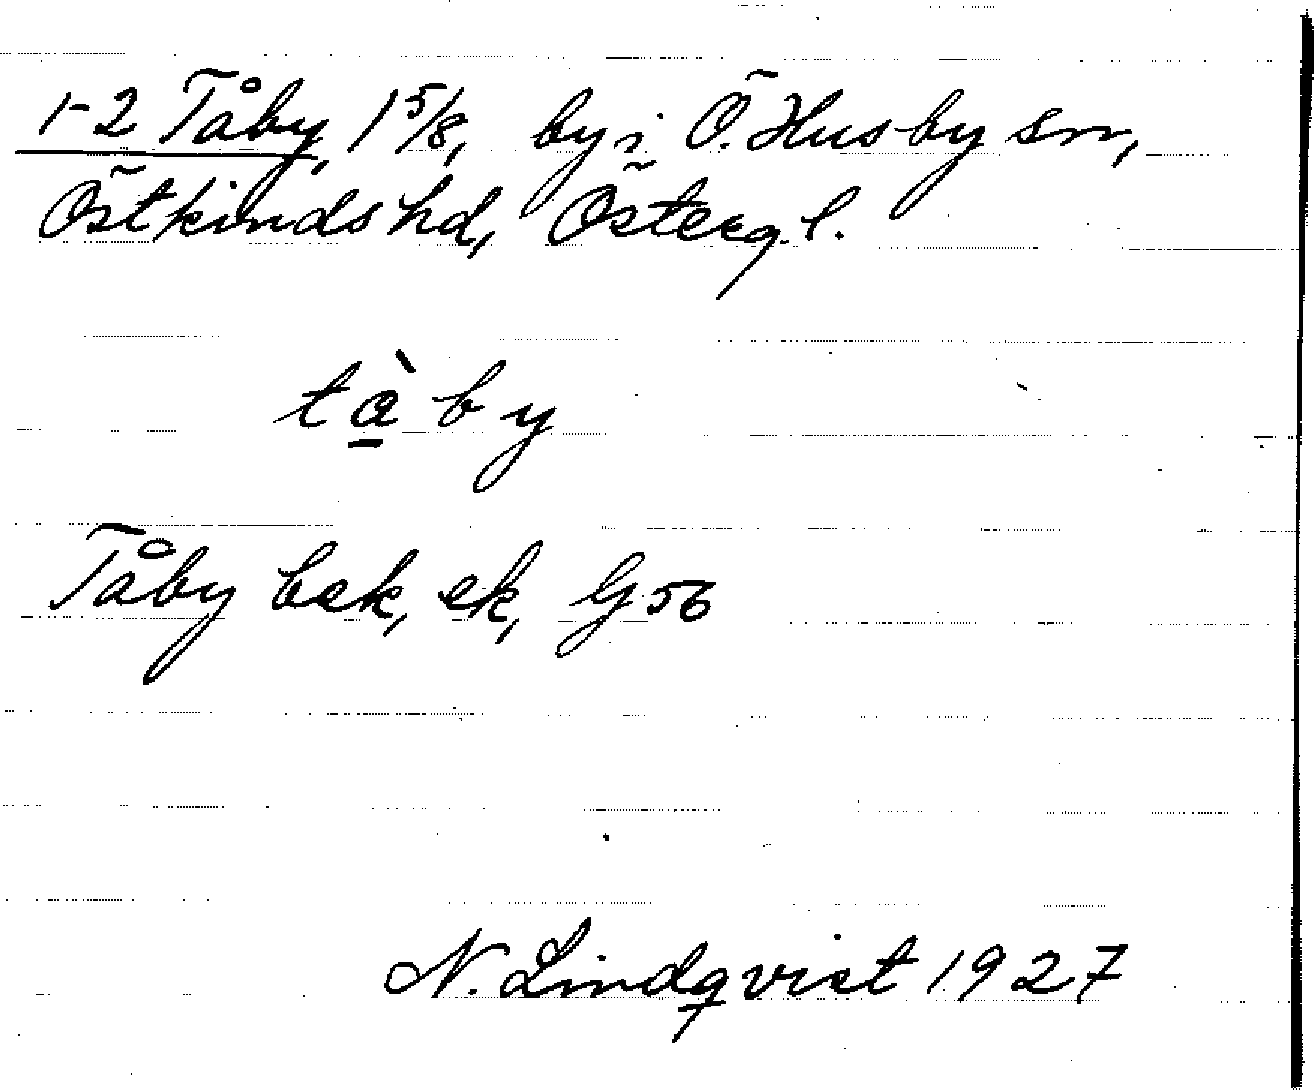 1-2 Tåby, 1 5/8, by i Ö. Husby sn,
Östkinds hd, Österg. l.
tàby
Tåby bek, ek, G 56
N. Lindqvist 1927